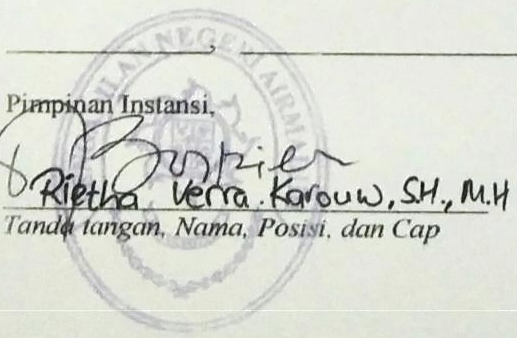 ILAN NEGERI AIRMA
Pimpinan Instansi,
Rietha Verra Karouw, S.H., M.H
Tanda tangan, Nama, Posisi, dan Cap